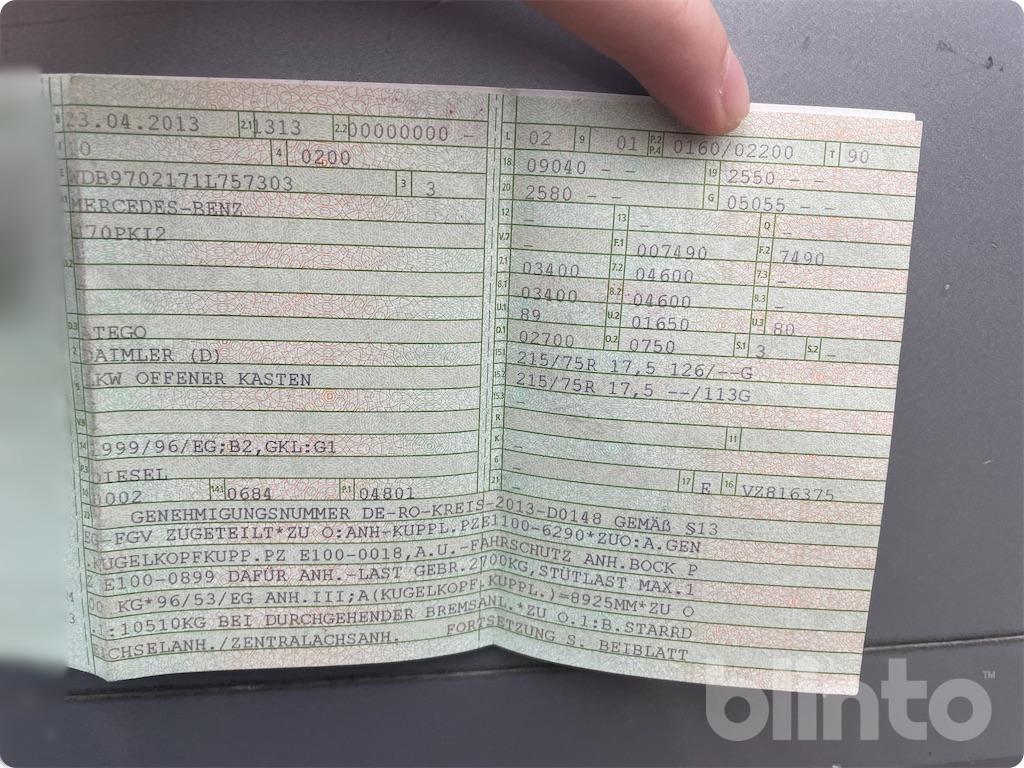 B 23.04.2013 2.1 1313 2.2 00000000 –
4 0200
E WDB9702171L757303 3 3
MERCEDES-BENZ
970PKI2
ATEGO
DAIMLER (D)
LKW OFFENER KASTEN
1999/96/EG;B2,GKL:G1
DIESEL
0002 14.1 0684 P.1 04801
L 02 9 01 P.2 P.4 0160/02200 T 90
18 09040 – – 19 2550 – –
20 2580 – – G 05055 – –
12 – 13 Q –
V.7 – F.1 007490 F.2 7490
7.1 03400 7.2 04600 7.3 –
8.1 03400 8.2 04600 8.3 –
U.1 89 U.2 01650 U.3 80
O.1 02700 O.2 0750 S.1 3 S.2 –
15.1 215/75R 17,5 126/--G
15.2 215/75R 17,5 --/113G
15.3
R
K – 11
6 –
21 – 17 E 16 VZ816375
GENEHMIGUNGSNUMMER DE-RO-KREIS-2013-D0148 GEMÄß §13
EG-FGV ZUGETEILT*ZU O:ANH-KUPPL.PZE1100-6290*ZUO:A.GEN
KUGELKOPFKUPP.PZ E100-0018,A.U.-FAHRSCHUTZ ANH.BOCK P
Z E100-0899 DAFÜR ANH.-LAST GEBR.2700KG,STÜTLAST MAX.1
00 KG*96/53/EG ANH.III;A(KUGELKOPF,KUPPL.)=8925MM*ZU O
.1:10510KG BEI DURCHGEHENDER BREMSANL.*ZU O.1:B.STARRD
EICHSELANH./ZENTRALACHSANH. FORTSETZUNG S. BEIBLATT
blinto™